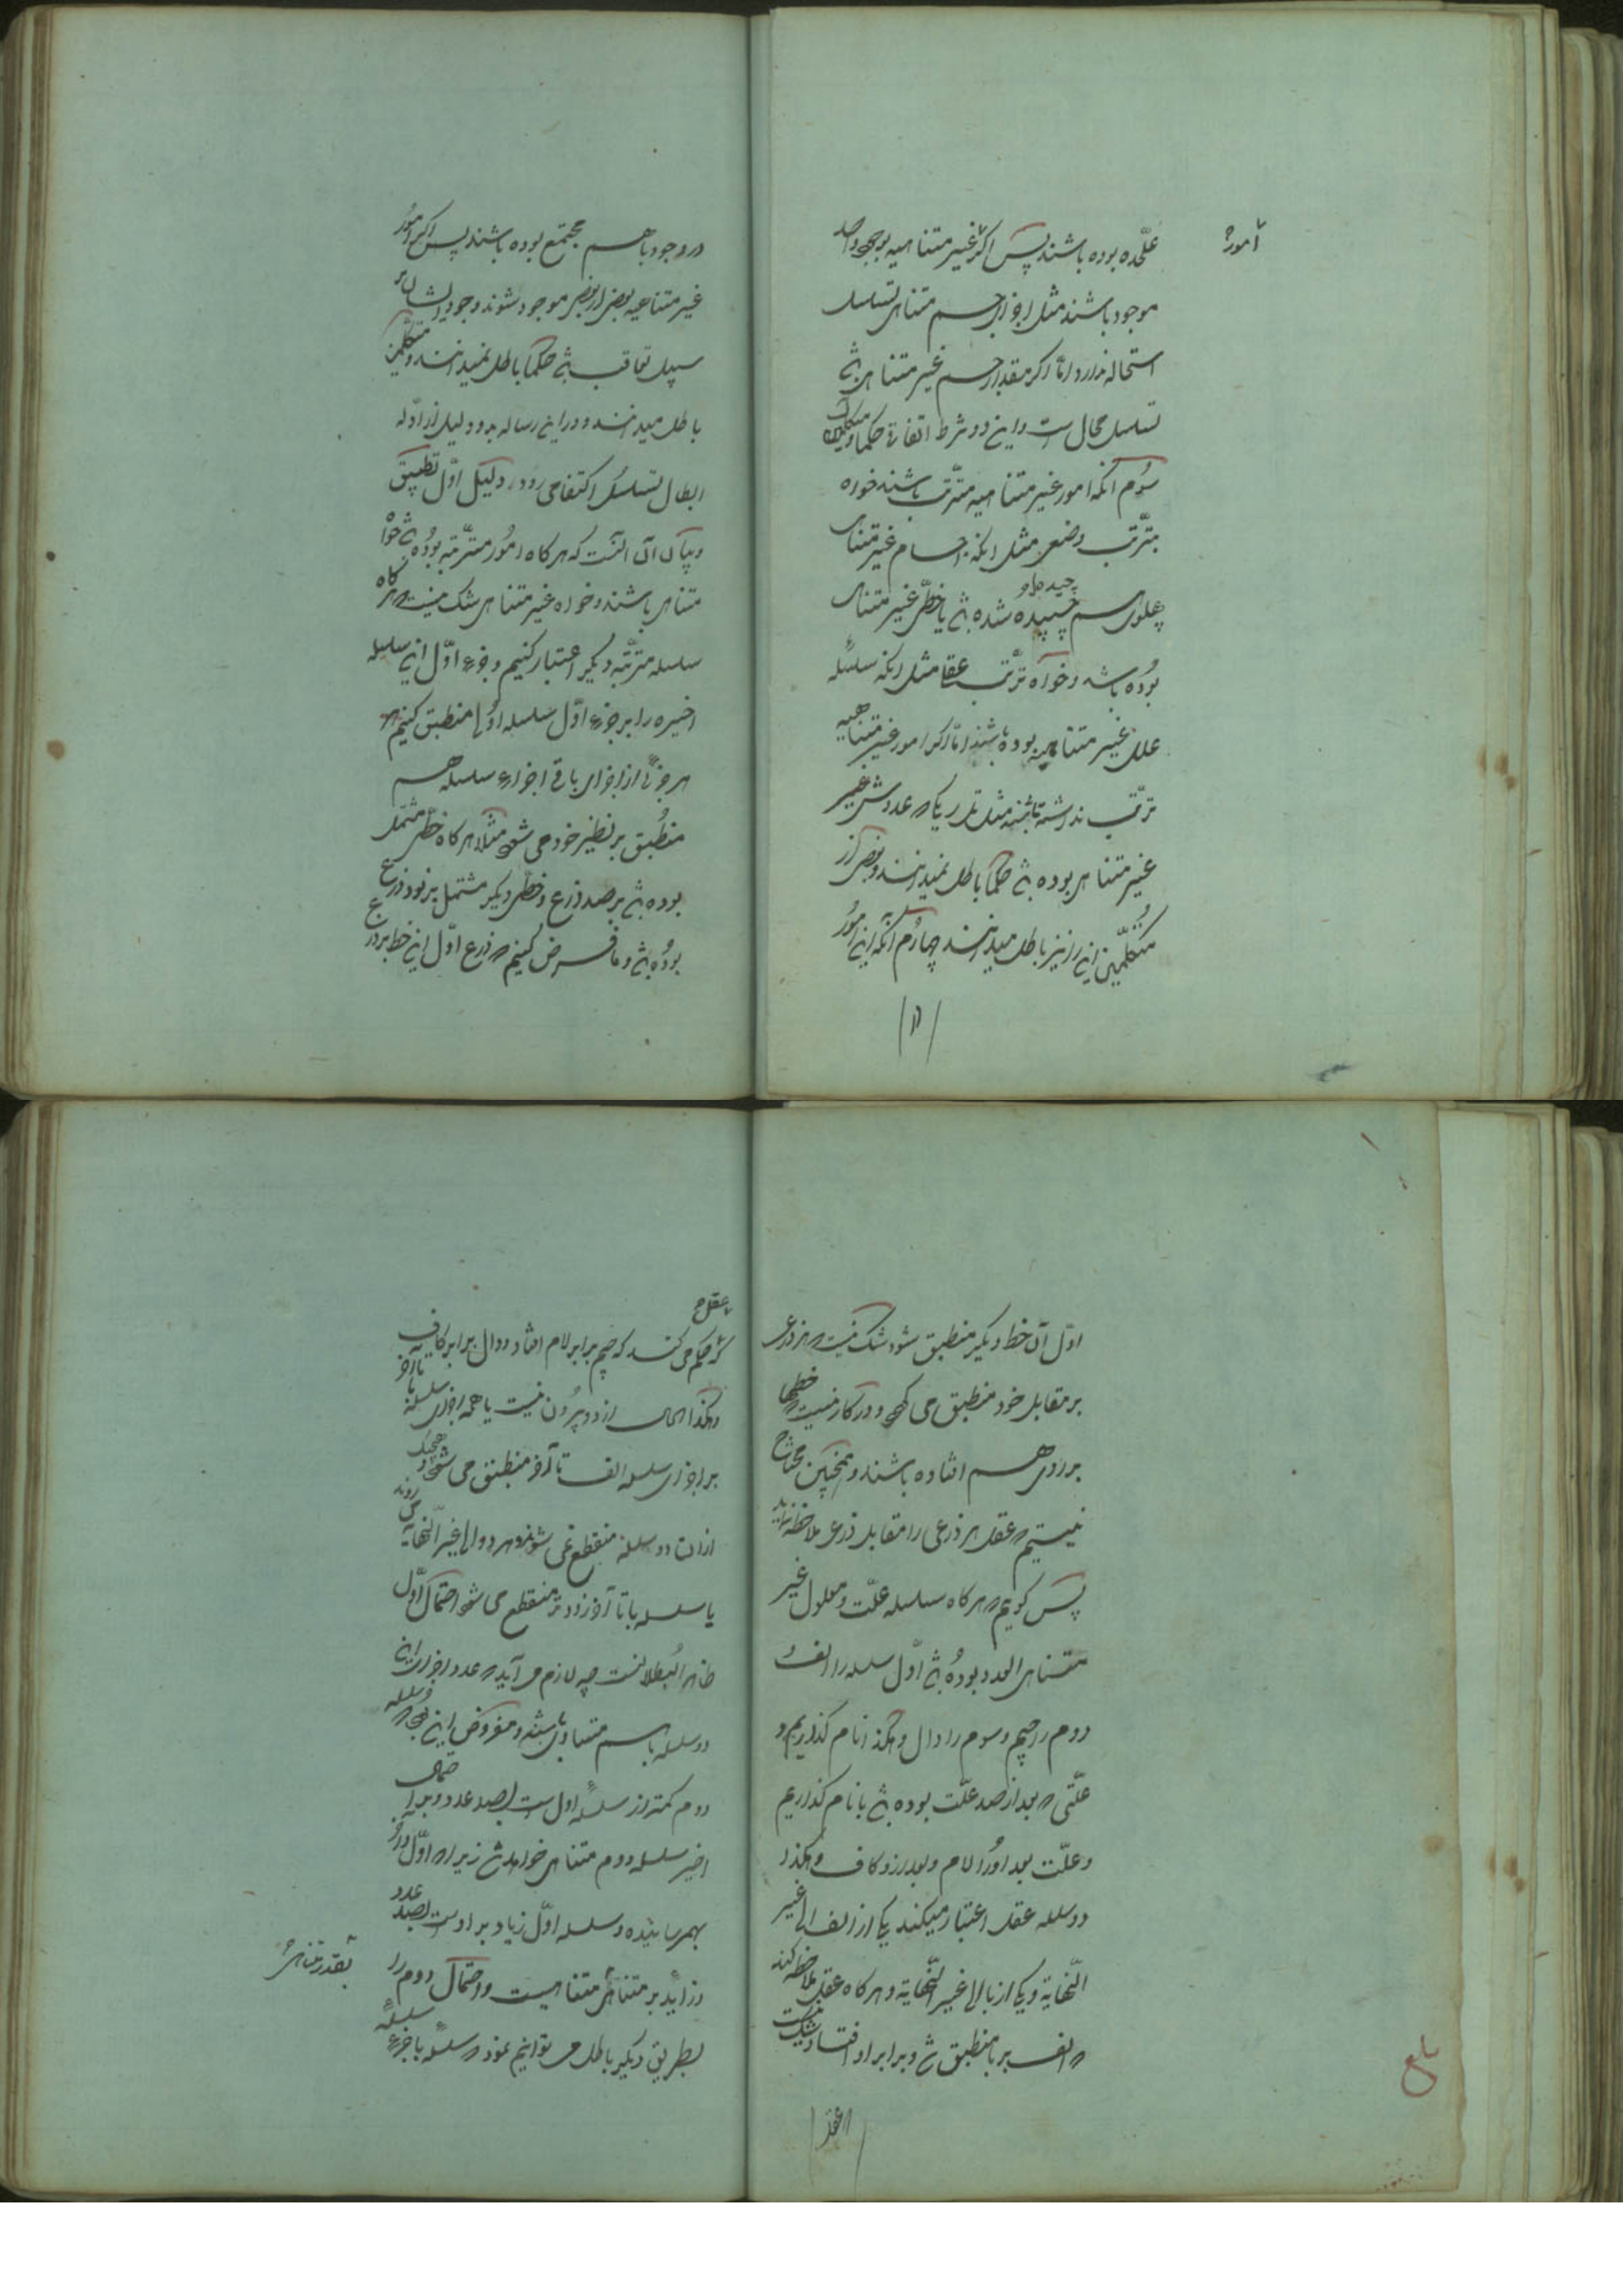 علّحده بوده باشند پس اکر غیر متناهیه بوجود واحد
امور
موجود باشند مثل اجزای جسم متناهی تسلسل
استحاله ندارد امّا اکر مقدار جسم غیر متناهی بٰ
تسلسل محال است و این دو شرط اتفاقی حکما و متکلمین
سوّم آنکه امور غیر متناهیه مترتب باشند خواه
بترّتب وضعی مثل اینکه اجسام غیر متناهی
پهلوی هم چسپیده شده بٰ یا خطّی غیر متناهی
بوده باشد و خواه ترتّب عقلا مثل اینکه سلسلهٔ
علل غیر متناهیه بوده باشند امّا اکر امور غیر متناهیه
ترتّب نداشته باشند مثل تل ریک که عددش غیر
غیر متناهی بوده بٰ حکما باطل نمیدانند و بعضی از
متکلّمین این را نیز باطل میدانند چهارم آنکه این امور
در وجود با هم مجتمع بوده باشند پس اکر امور
غیر متناهیه بعضی از بعضی موجود شوند و وجود ایشان بر
سبیل تعاقب بٰ حکما باطل نمیدانند و متکلّمین
باطل میدانند و در این رساله بدو دلیل از ادّله
ابطال تسلسل اکتفا می رود دلیل اوّل تطبیق
و بیان آن آنست که هر کاه امور مترّتبه بوده بٰ خواه
متناهی باشند و خواه غیر متناهی شک نیست که هر کاه
سلسله مترّتبه دیکر اعتبار کنیم و جزء اوّل این سلسله
اخیره را بر جزء اوّل سلسله اولی منطبق کنیم
هر جزئی از اجزای باقی اجزاء سلسله هم
منطبق بر نظیر خود می شود مثلا هر کاه خطّی مشتمل
بوده بٰ بر صد ذرع و خطّی دیکر مشتمل بر نود ذرع
بوده بٰ و ما فرض کنیم که ذرع اوّل این خط بر ذرع
اوّل آن خط دیکر منطبق شود شک نیست که هر ذرعی
بر مقابل خود منطبق می کردد و در کار نیست که خطها
بر روی هم افتاده باشند و همچنین محتاج
نیستیم که عقل هر ذرعی را مقابل ذرعی ملاحظه نماید
پس کوییم که هر کاه سلسله علّت و معلول غیر
متناهی العدد بوده بٰ اوّل سلسله را الف
دوم را جیم و سوم را دال و هکذا نام کذاریم و
علّتی که بعد از صد علّت بوده بٰ با نام کذاریم
و علّت بعد او را لام و بعد ازو کاف و هکذا
دو سلسله عقل اعتبار میکند یکی از الف الی غیر
النّهایة و یکی از با الی غیر النّهایة و هر کاه عقل ملاحظه کند
که الف بر با منطبق شٰ و برابر او افتاد شک نیست
که عقل
حکم می کند که جیم برابر لام افتاد و دال برابر کاف
و هکذا تا آخر الحال از دو بیرون نیست یا همه اجزای سلسله با
بر اجزای سلسله الف تا آخر منطبق می شود و هیچیک
از این دو سلسله منقطع نمی شوند و هر دو الی غیر النّهایة می روند
یا سلسله با تا آخر زودتر منقطع می شود احتمال اوّل
ظاهر البُطلانست چه لازم می آید که عدد اجزای این
دو سلسله با هم متساوی باشند و مفروض این بود که سلسله
دوم کمتر از سلسلهٔ اول است بصد عدد و بنا بر احتمال
اخیر سلسله دوم متناهی خواهد بٰ زیرا که اوّل و آخر
بهمرسانیده و سلسله اوّل زیاد بر اوست بصد عدد
و زاید بر متناهی متناهیست و احتمال دوم را
بقدر متناهی
بطریق دیکر باطل می توانیم نمود که سلسلهٔ با جزء سلسلهٔ
بلغ